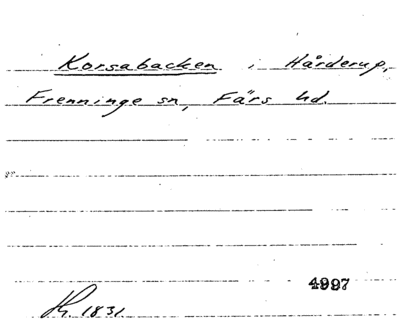 Korsabacken i Hårderup,
Frenninge sn, Färs hd.
4997
1831